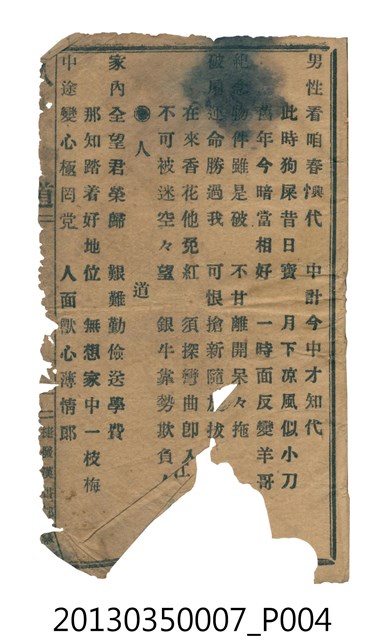 男性看咱春興代 中計今中才知代
此時狗屎昔日寶 月下凉風似小刀
舊年今暗當相好 一時面反變羊哥
紀念物件雖是破 不甘離開呆々拖
破扇運命勝過我 可恨搶新隨 拔
在來香花他死紅 須探彎曲即入
不可被迷空々望 銀牛靠勢欺負
人道
家內全望君榮歸 艱難勤儉送學費
那知踏着好地位 無想家中一枝梅
中途變心極罔党 人面獸心薄情郎
道
20130350007_P004